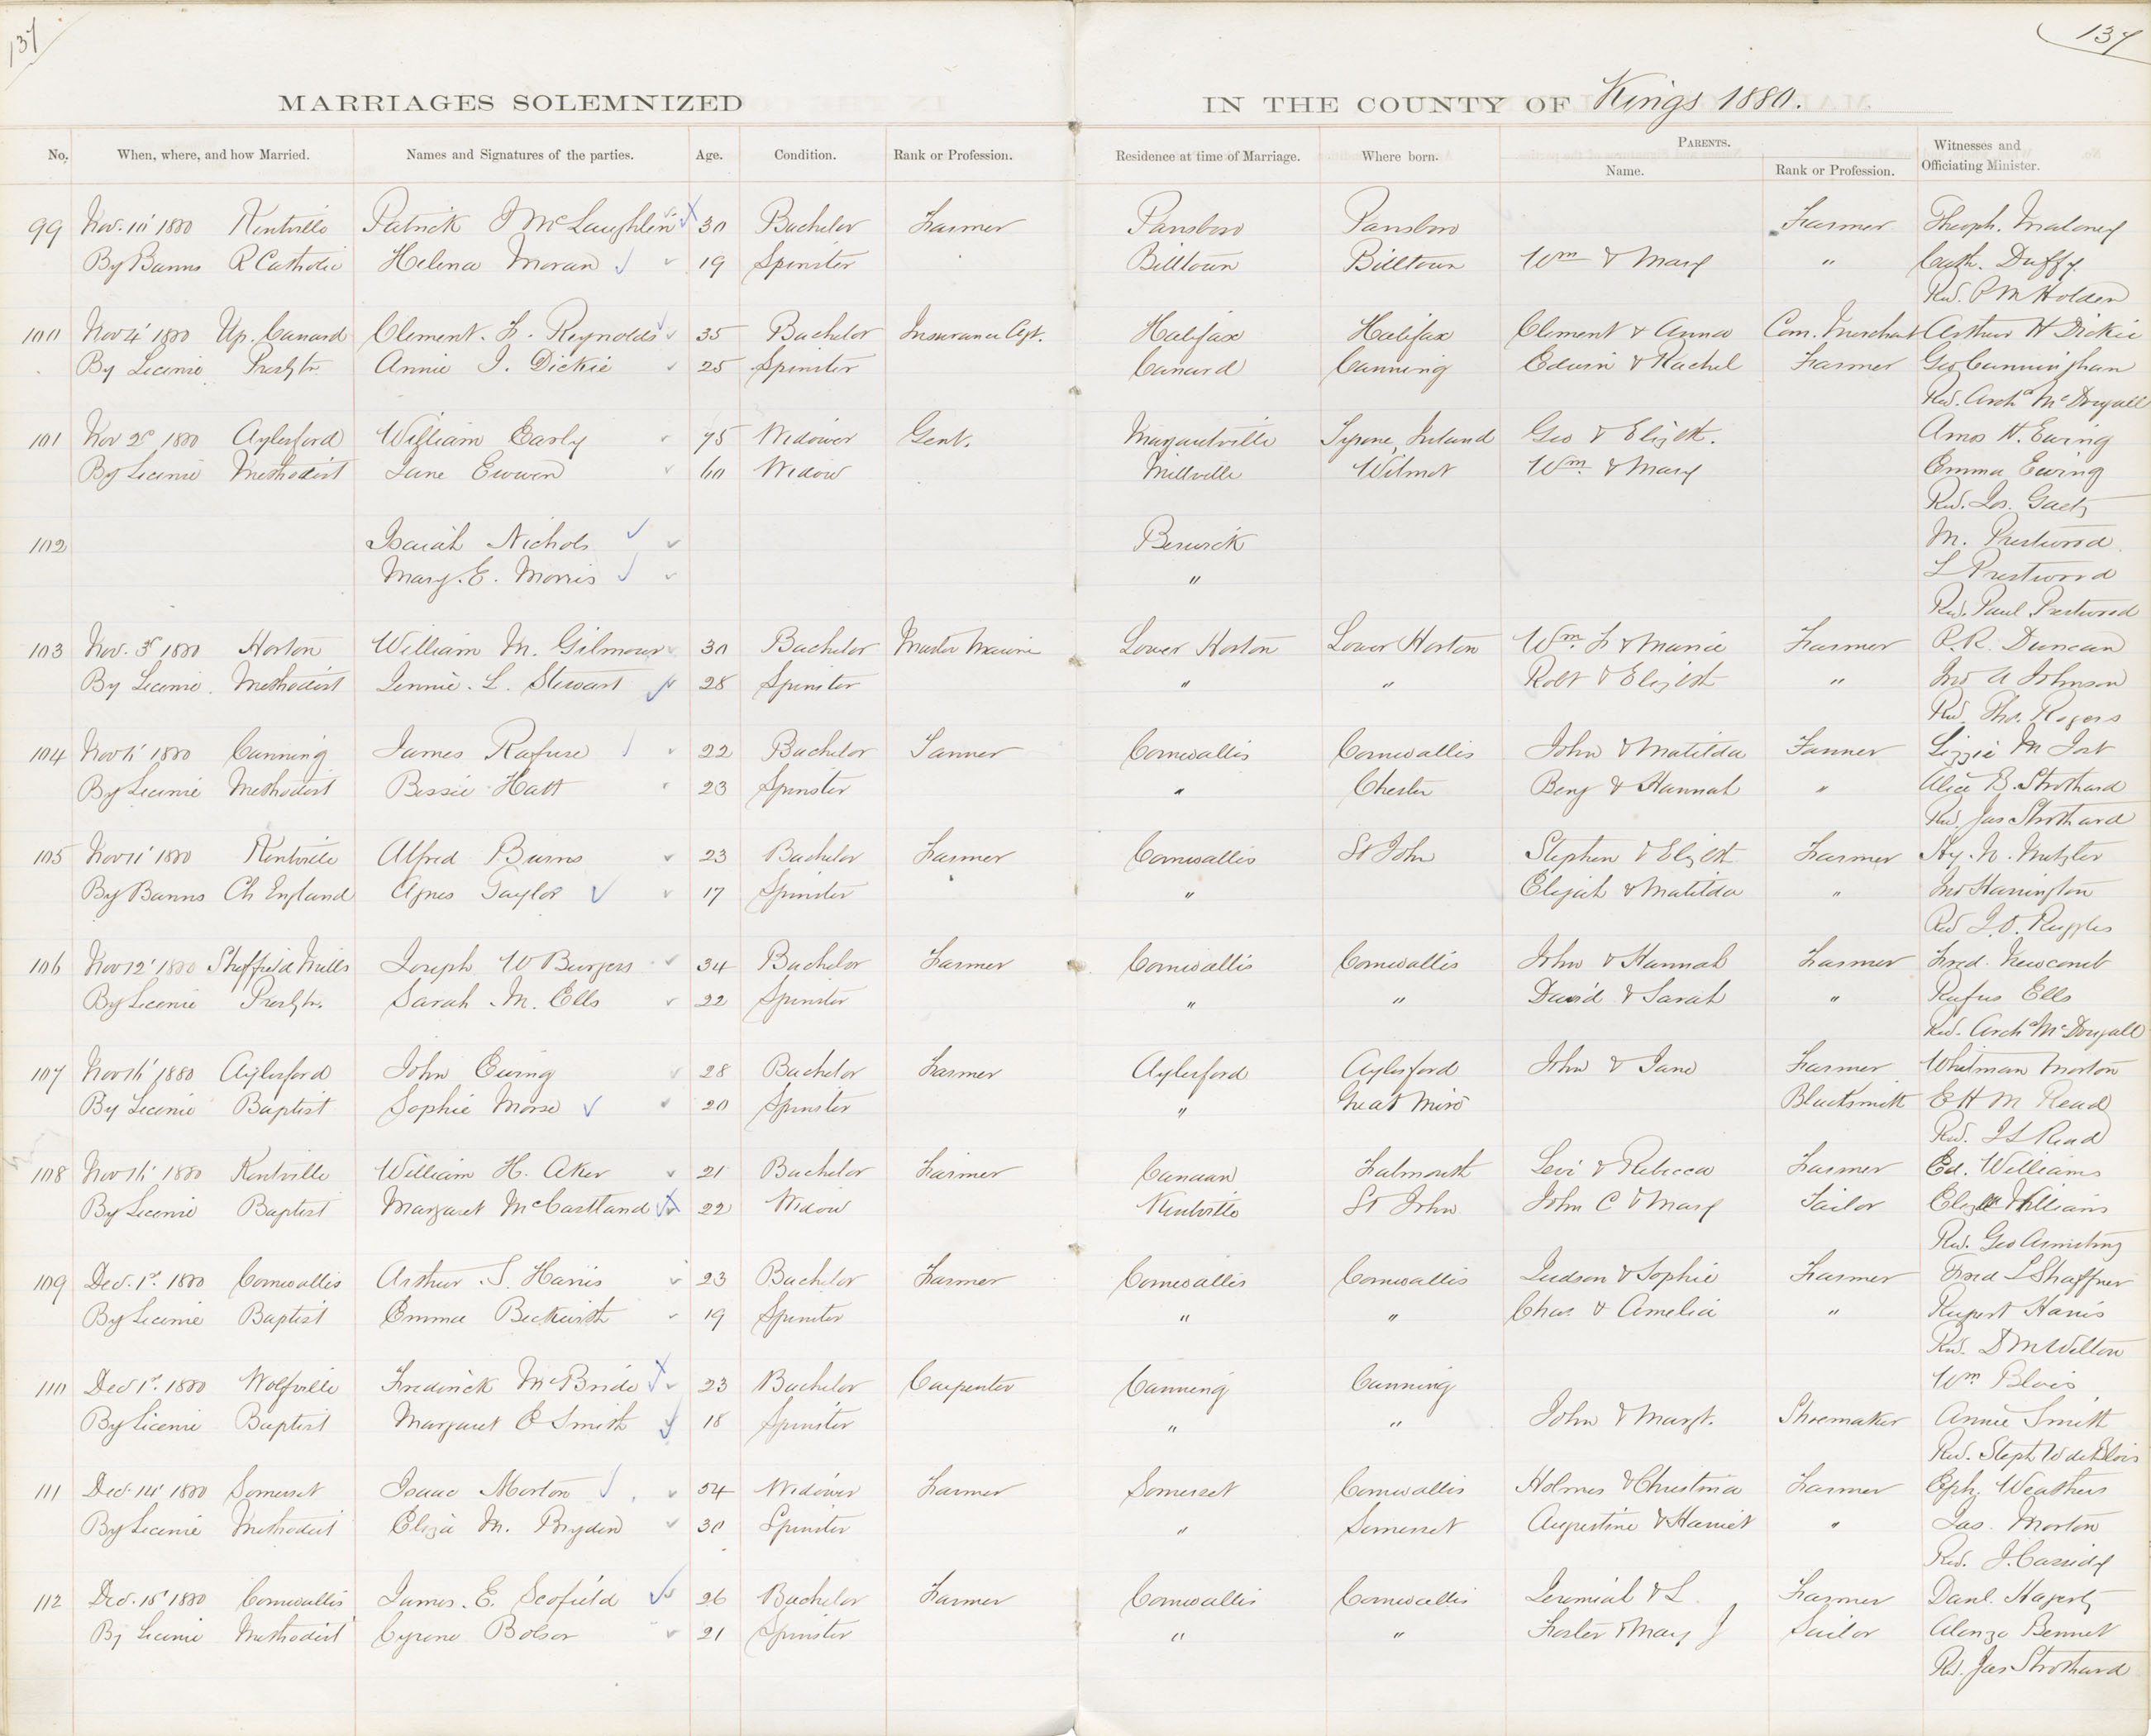 137
137
MARRIAGES SOLEMNIZED IN THE COUNTY OF Kings 1880.
No. When, where, and how Married. Names and Signatures of the parties. Age. Condition. Rank or Profession. Residence at time of Marriage. Where born. PARENTS. Name. Rank or Profession. Witnesses and Officiating Minister.
99 Nov. 10' 1880 Kentville Patrick J McLaughlin 30 Bachelor Farmer Parrsboro Parrsboro Farmer Theoph. Maloney
By Banns R Catholic Helena Moran 19 Spinster Billtown Billtown Wm & Mary " Cath. Duffy
Rev. P M Holden
100 Nov 4' 1880 Up. Canard Clement. F. Reynolds 35 Bachelor Insurance Agt. Halifax Halifax Clement & Anna Com. Merchant Arthur H Dickie
By Licence Presbytr Annie I. Dickie 25 Spinster Canard Canning Edwin & Rachel Farmer Geo Cunningham
Rev. Archd McDougall
101 Nov 2d 1880 Aylesford William Early 75 Widower Gent. Margaretville Tyrone, Ireland Geo & Elizth. Amos H. Ewing
By Licence Methodist Jane Ewwen 60 Widow Millville Wilmot Wm & Mary Emma Ewing
Rev. Jos. Gaetz
102 Isaiah Nichols Berwick M. Prestwood
Mary. E. Morris " L Prestwood
Rev. Paul Prestwood
103 Nov. 3d 1880 Horton William M. Gilmour 30 Bachelor Master Marine Lower Horton Lower Horton Wm. F & Maria Farmer P.R. Duncan
By Licence. Methodist Jennie. L. Stewart 28 Spinster " " Robt & Elizbth " Jno A Johnson
Rev Thos. Rogers
104 Nov 11' 1880 Canning James Rafuse 22 Bachelor Tanner Cornwallis Cornwallis John & Matilda Farmer Lizzie M Jost
By Licence Methodist Bessie Hatt 23 Spinster " Chester Benj & Hannah " Alice B. Strothard
Rev. Jas Strothard
105 Nov 11' 1880 Kentville Alfred Burns 23 Bachelor Farmer Cornwallis St John Stephen & Elizbth Farmer Hy. N. Metzler
By Banns Ch England Agnes Taylor 17 Spinster " Elijah & Matilda " Jno Harrington
Rev J.O. Ruggles
106 Nov 12' 1880 Sheffield Mills Joseph W Burgess 34 Bachelor Farmer Cornwallis Cornwallis John & Hannah Farmer Fred. Newcomb
By Licence Presbytr. Sarah M. Ells 22 Spinster " " David & Sarah " Rufus Ells
Rev. Archd McDougall
107 Nov 16' 1880 Aylesford John Ewing 28 Bachelor Farmer Aylesford Aylesford John & Jane Farmer Whitman Morton
By Licence Baptist Sophie Morse 20 Spinster " Blacksmith E H M Read
Rev. J L Read
108 Nov 16' 1880 Kentville William H. Aker 21 Bachelor Farmer Canaan Falmouth Levi & Rebecca Farmer Ed. Williams
By Licence Baptist Margaret McCastland 22 Widow Kentville St John John C & Mary Tailor Elizth Williams
Rev. Geo Armstrong
109 Dec. 1st. 1880 Cornwallis Arthur S. Harris 23 Bachelor Farmer Cornwallis Cornwallis Judson & Sophie Farmer Fred L Shaffner
By Licence Baptist Emma Beckwith 19 Spinster " " Chas & Amelia " Rupert Harris
Rev. D M Welton
110 Dec 1st. 1880 Wolfville Frederick McBride 23 Bachelor Carpenter Canning Canning Wm Blois
By Licence Baptist Margaret E Smith 18 Spinster " " John & Margt. Shoemaker Annie Smith
Rev. Steph W deBlois
111 Dec. 14' 1880 Somerset Isaac Morton 54 Widower Farmer Somerset Cornwallis Holmes & Christina Farmer Ephj Weathers
By Licence Methodist Eliza M. Bryden 30 Spinster " Somerset Augustine & Harriet " Jas. Morton
Rev. J. Cassidy
112 Dec. 15' 1880 Cornwallis James. E. Scofield 26 Bachelor Farmer Cornwallis Cornwallis Jeremiah & L Farmer Danl. Hagerty
By Licence Methodist Cyrene Bolsor 21 Spinster " " Foster & Mary J Sailor Alonzo Bennet
Rev. Jas Strothard